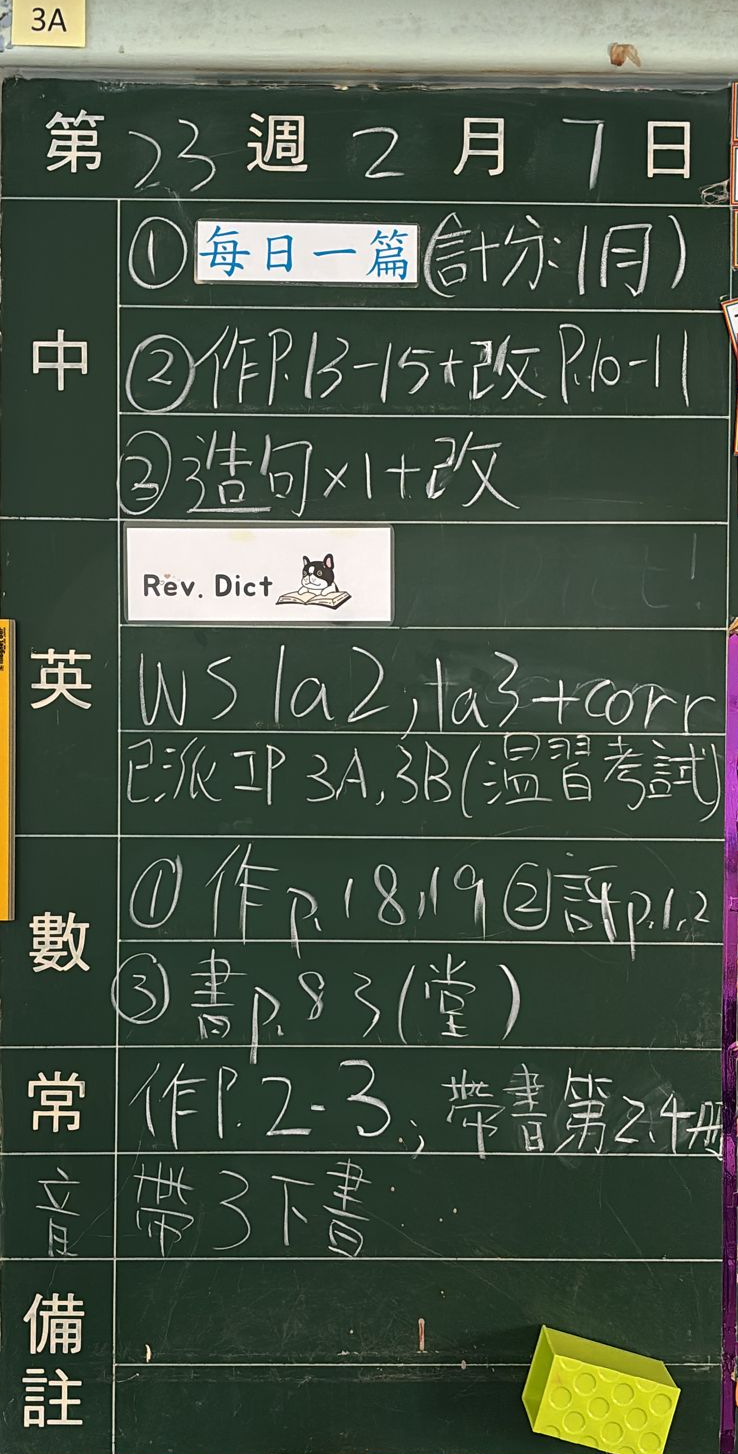 3A
第23週2月7日
中
①每日一篇(計分:1月)
②作P.13-15+改P.10-11
③造句×1+改
英
Rev. Dict
WS 1a2,1a3+corr
已派IP 3A,3B(溫習考試)
數
①作p.18,19 ②評p.1,2
③書p.83(堂)
常
作P.2-3;帶書第2,4冊
音
帶3下書
備註